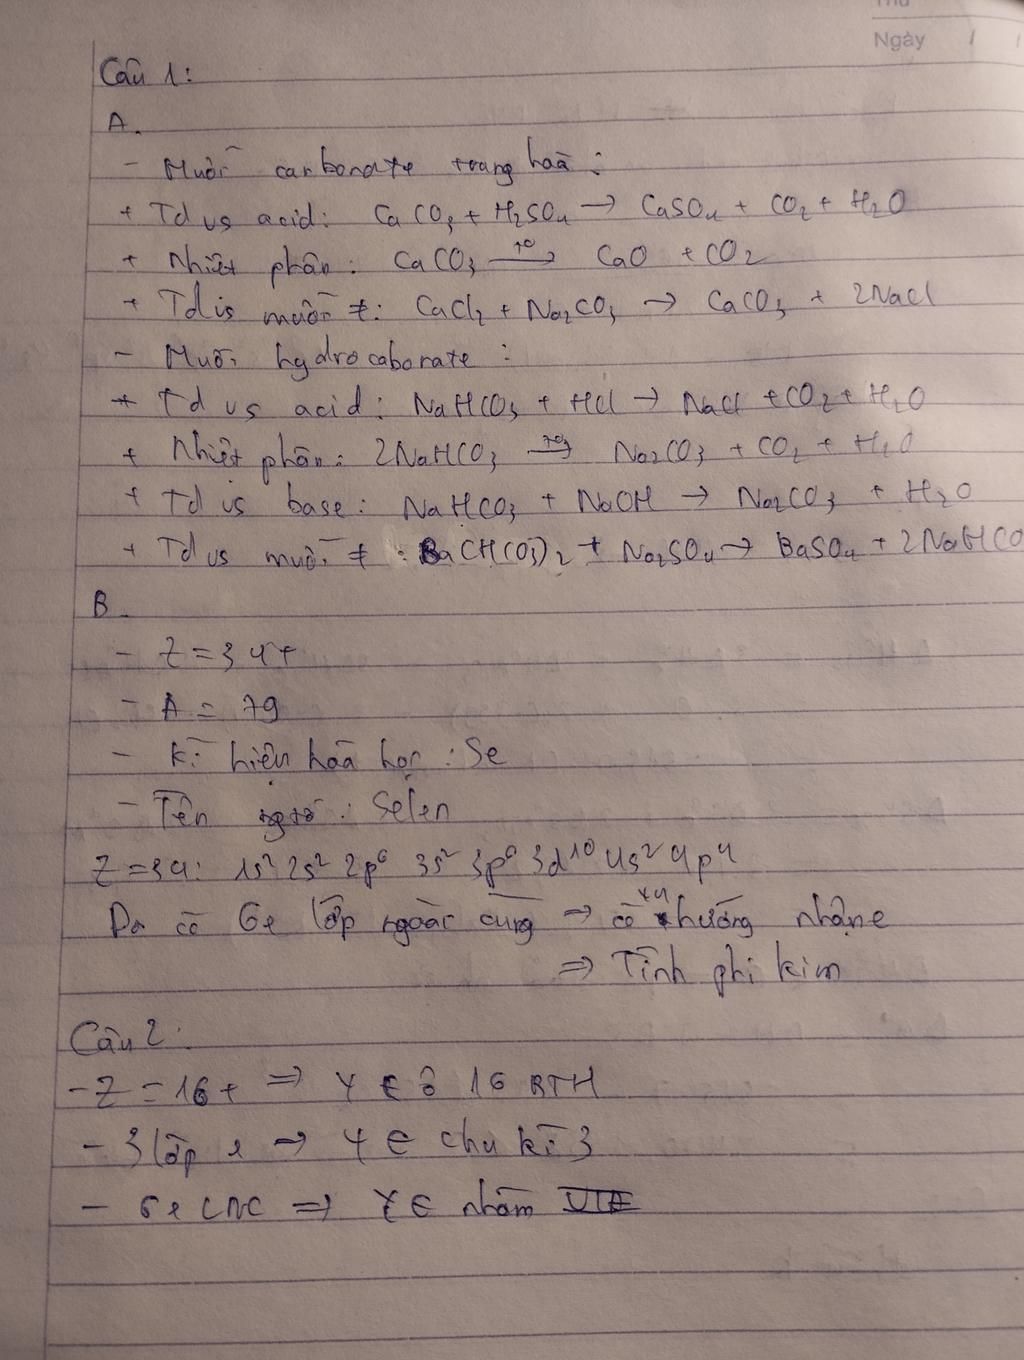 Ngày / /
Câu 1:
A.
- Muối carbonate trung hoà:
+ Td vs acid: CaCO₃ + H₂SO₄ → CaSO₄ + CO₂ + H₂O
+ Nhiệt phân: CaCO₃ →(t°) CaO + CO₂
+ Td vs muối ≠: CaCl₂ + Na₂CO₃ → CaCO₃ + 2NaCl
- Muối hydrocaborate:
+ Td vs acid: NaHCO₃ + HCl → NaCl + CO₂ + H₂O
+ Nhiệt phân: 2NaHCO₃ →(t°) Na₂CO₃ + CO₂ + H₂O
+ Td vs base: NaHCO₃ + NaOH → Na₂CO₃ + H₂O
+ Td vs muối ≠: Ba(HCO₃)₂ + Na₂SO₄ → BaSO₄ + 2NaHCO
B.
- Z = 34+
- A = 79
- Kí hiệu hoá học: Se
- Tên ngtố: Selen
Z = 34: 1s² 2s² 2p⁶ 3s² 3p⁶ 3d¹⁰ 4s² 4p⁴
Do có 6e lớp ngoài cùng ⇒ có xu hướng nhận e
⇒ Tính phi kim
Câu 2:
- Z = 16+ ⇒ Y ∈ ô 16 BTH
- 3 lớp e ⇒ Y ∈ chu kì 3
- 6e LNC ⇒ Y ∈ nhóm VIA